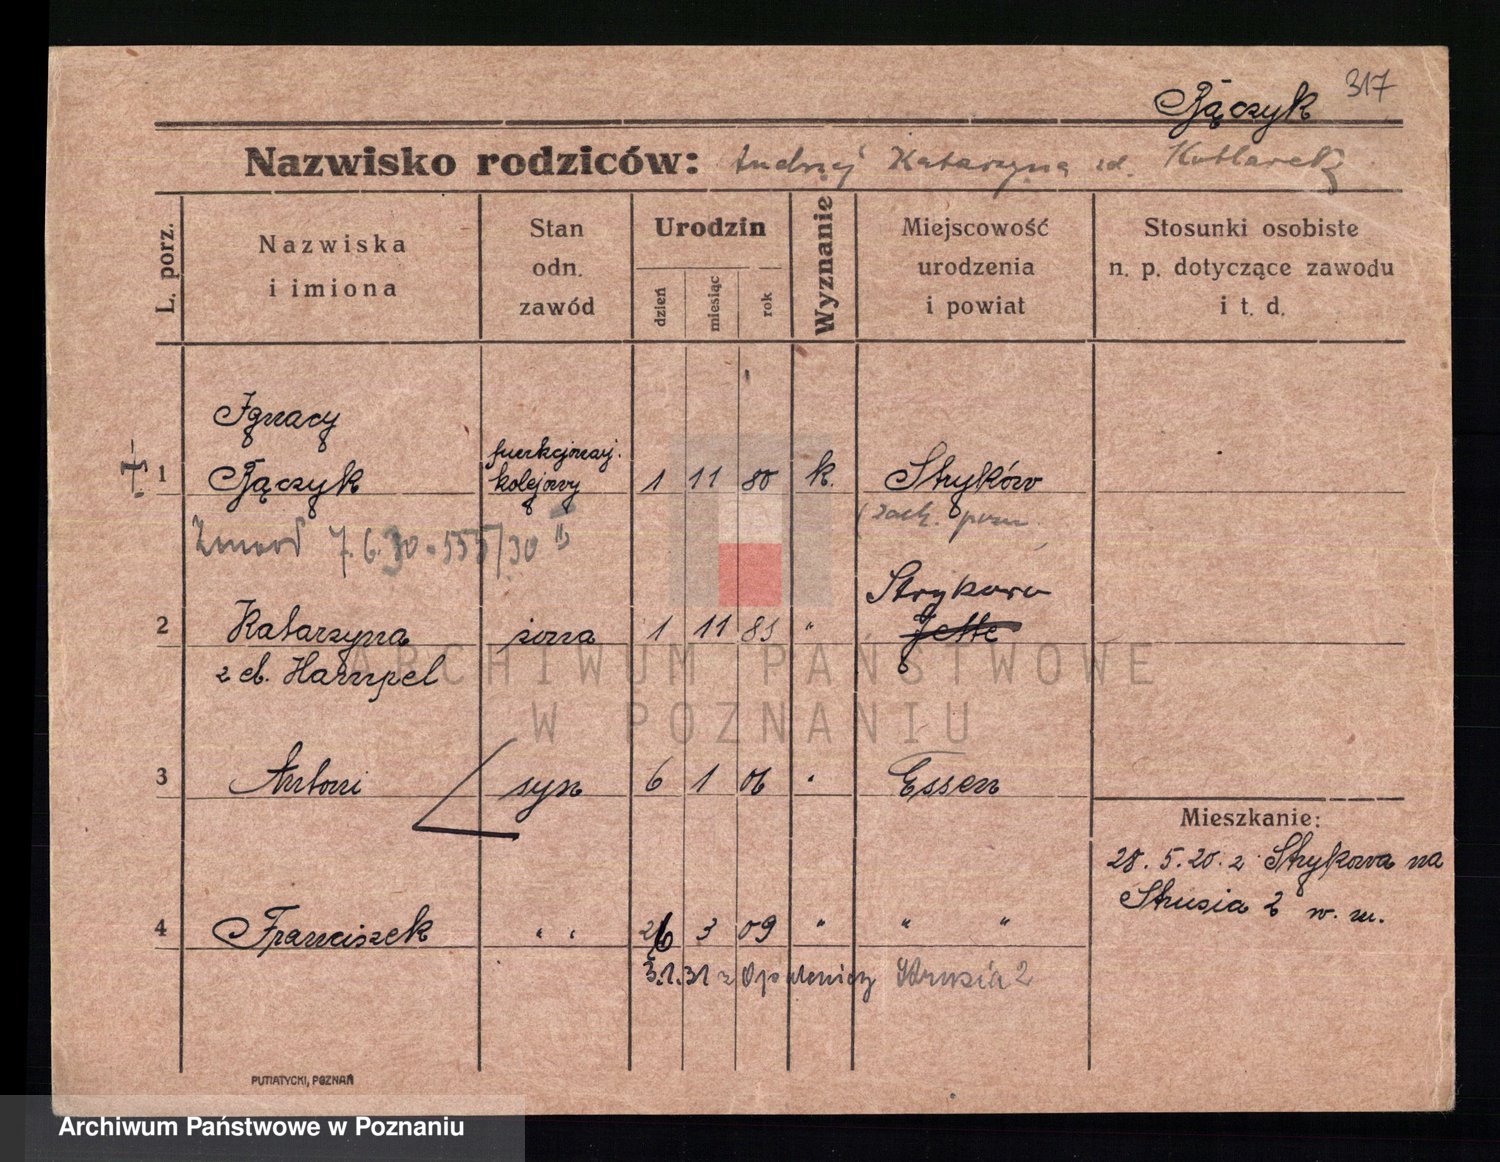 317
Bączyk
Nazwisko rodziców: Andrzej Katarzyna zd. Kotlarek
L. porz.
Nazwiska i imiona
Stan odn. zawód
Urodzin
dzień
miesiąc
rok
Wyznanie
Miejscowość urodzenia i powiat
Stosunki osobiste n. p. dotyczące zawodu i t. d.
Ignacy
1 Bączyk funkcjonarj. kolejowy 1 11 80 k. Stryków
7.6.30. 555/30
Strykowo
2 Katarzyna żona 1 11 83 " Jette
z d. Hampel
3 Antoni syn 6 1 06 " Essen
Mieszkanie:
28. 5. 20. z Strykowa na
Strusia 2 w. m.
4 Franciszek " " 26 3 09 " " "
3.1.31 z Opalenicy Strusia 2
PUTIATYCKI, POZNAŃ
ARCHIWUM PAŃSTWOWE
W POZNANIU
Archiwum Państwowe w Poznaniu